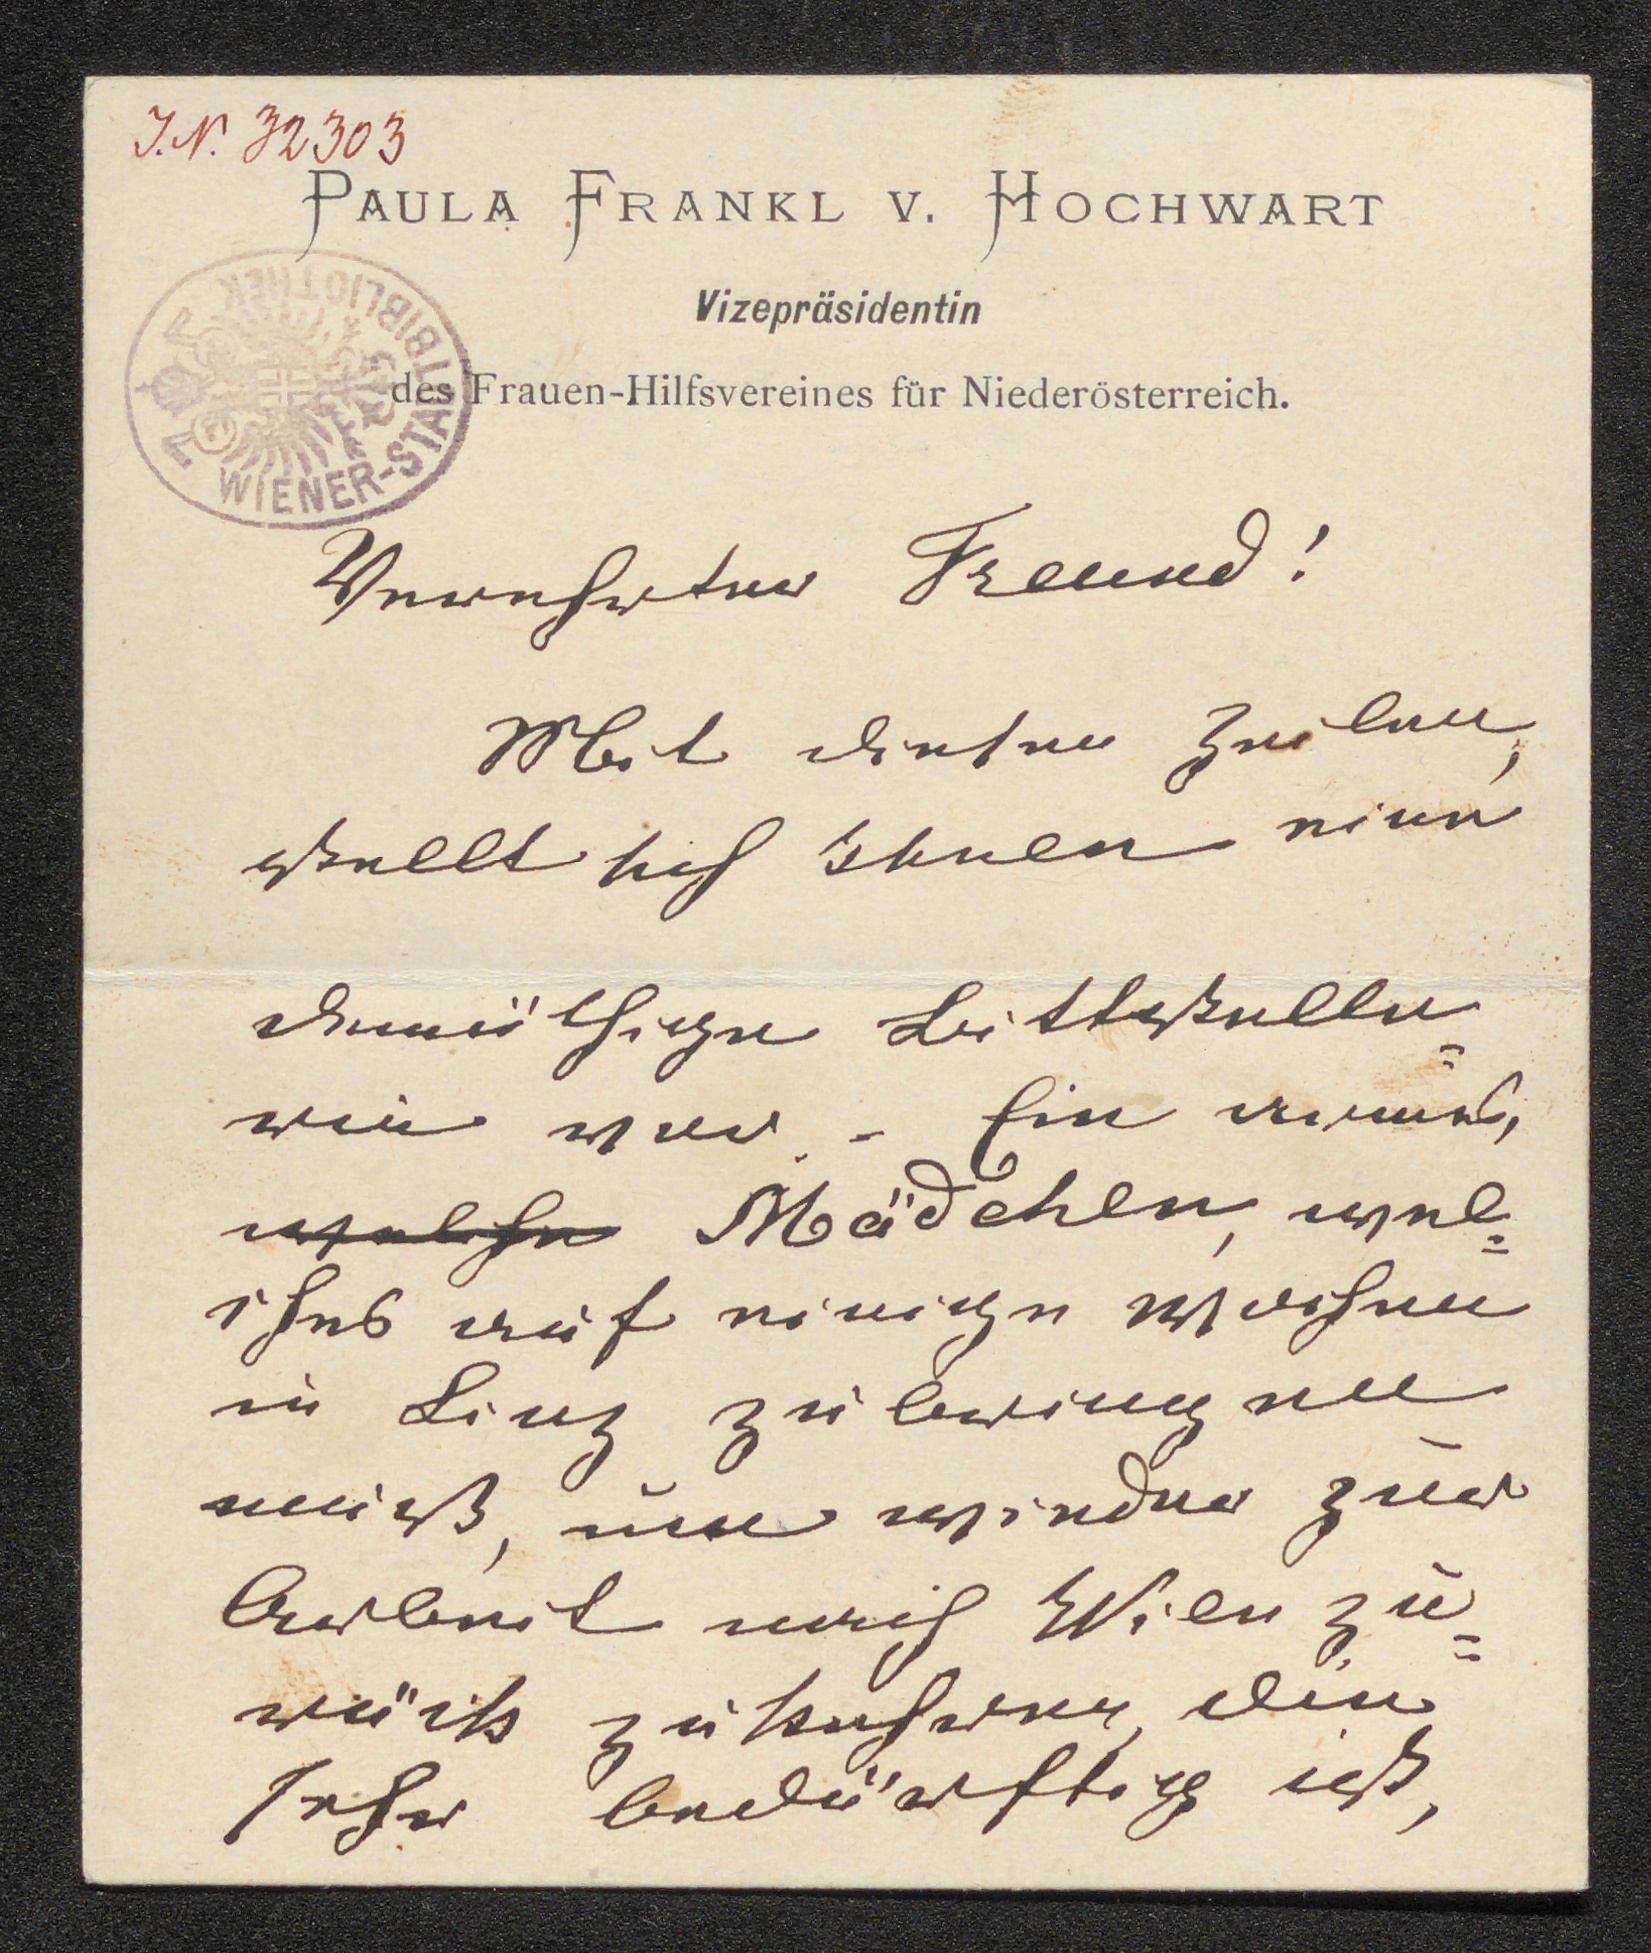 J.N. 32303
PAULA FRANKL V. HOCHWART
Vizepräsidentin
des Frauen-Hilfsvereines für Niederösterreich.
WIENER-STADTBIBLIOTHEK
Verehrter Freund!
Mit diesen Zeilen,
stellt sich Ihnen eine
demüthige Bittstelle=
rin vor. - Ein armes,
welche Mädchen, wel=
ches auf einige Wochen
in Linz zubringen
muß, um wieder zur
Arbeit nach Wien zu=
rück zukehren, die
sehr bedürftig ist,